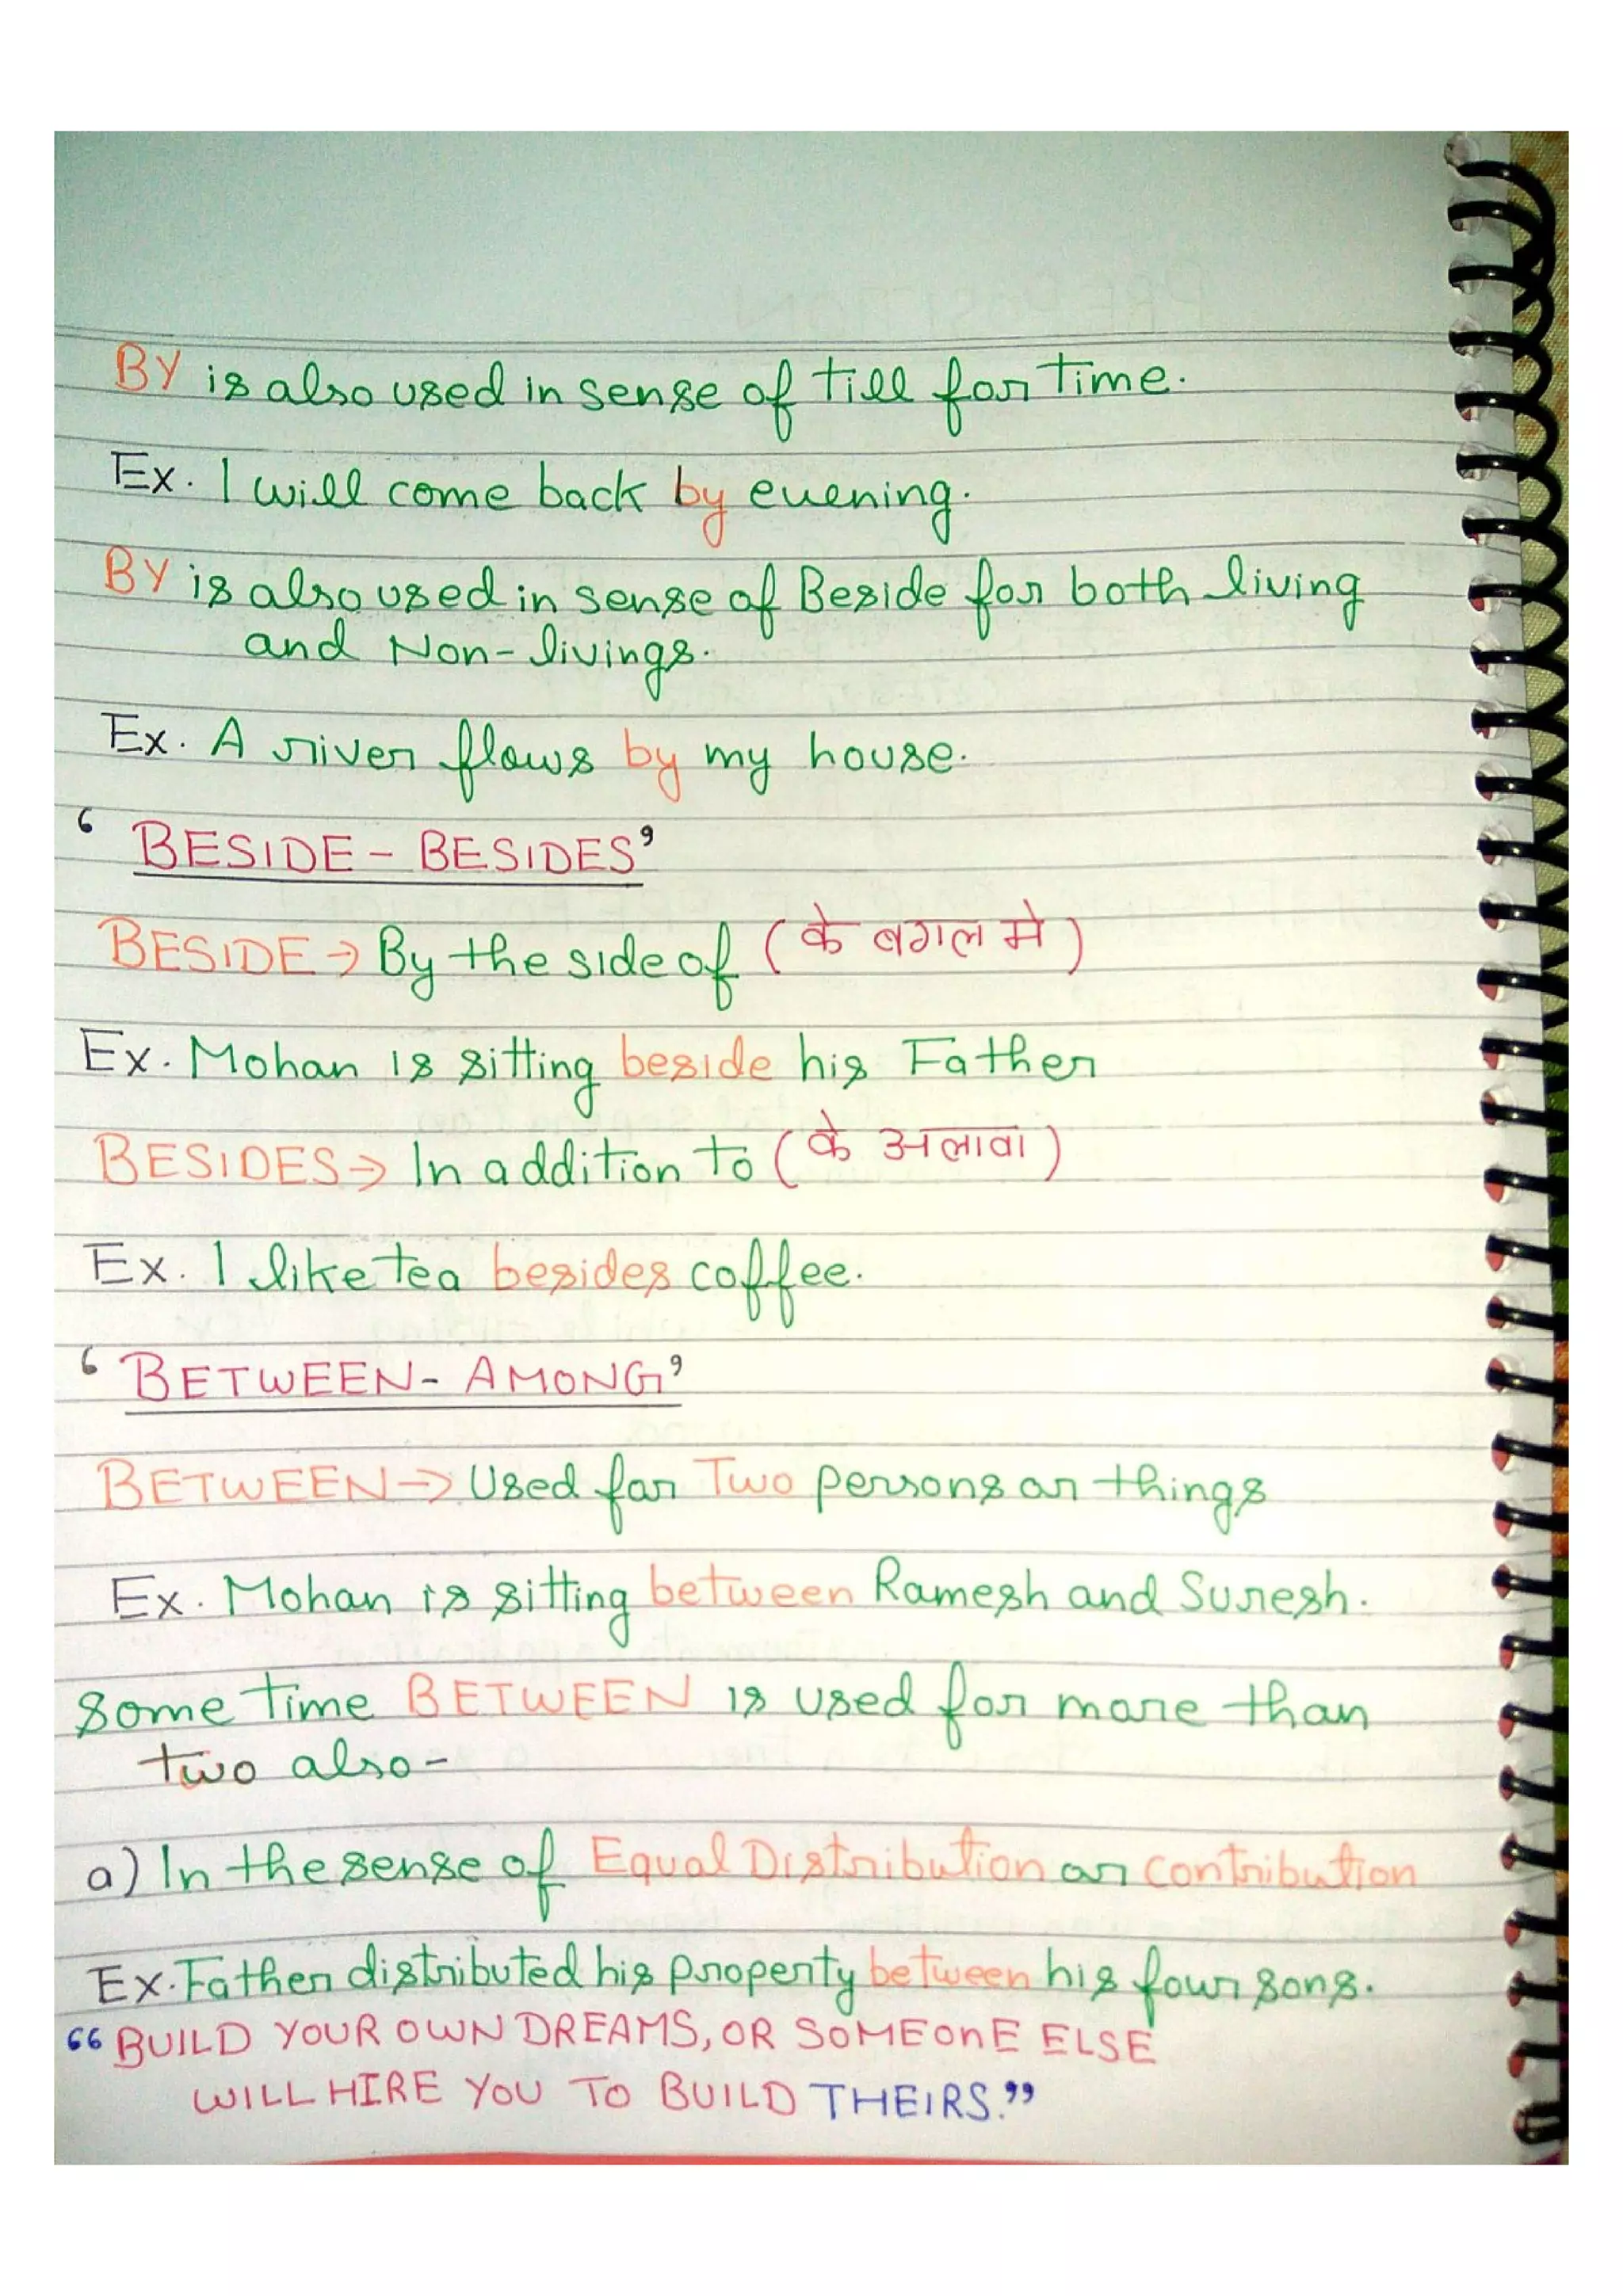 BY is also used in sense of till for time.
Ex. I will come back by evening.
BY is also used in sense of Beside for both living
and Non-livings.
Ex. A river flows by my house.
‘BESIDE - BESIDES’
BESIDE → By the side of (के बगल मे)
Ex. Mohan is sitting beside his Father
BESIDES → In addition to (के अलावा)
Ex. I like tea besides coffee.
‘BETWEEN - AMONG’
BETWEEN → Used for Two persons or things
Ex. Mohan is sitting between Ramesh and Suresh.
Some time BETWEEN is used for more than
two also -
a) In the sense of Equal Distribution or Contribution
Ex. Father distributed his property between his four sons.
“BUILD YOUR OWN DREAMS, OR SOMEOnE ELSE
WILL HIRE YOU TO BUILD THEIRS.”